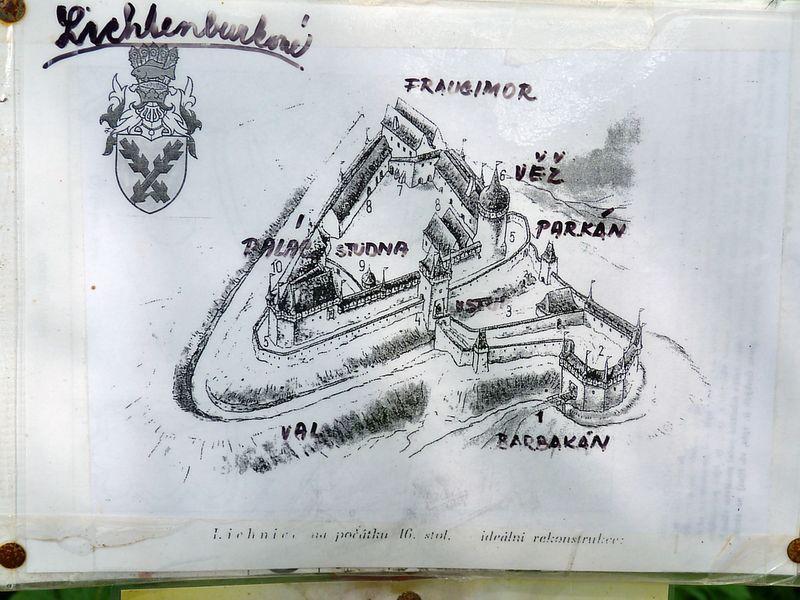 Lichtenburkové
FRAUCIMOR
6
VĚŽ
7
8
8
PARKÁN
PALÁC
STUDNA
5
10
9
VSTUP
3
4
5
2
1
VAL
BARBAKÁN
Lichnice na počátku 16. stol. ideální rekonstrukce